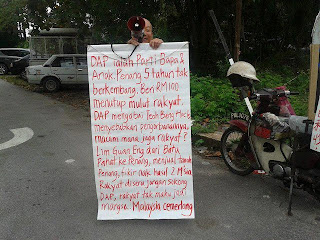 DAP ialah Parti Bapa &
Anak. Penang 5 tahun tak
berkembang. Beri RM100
menutup mulut rakyat.
DAP mengabai Teoh Beng Hock
menyebabkan pengorbanannya,
macam mana jaga Rakyat?
Lim Guan Eng dari Batu
Pahat ke Penang, menjual tanah
Penang, fikir nak hasil 2 M saja
Rakyat diseru jangan sokong
DAP, rakyat tak maku jadi
mangsa. Malaysia cemerlang